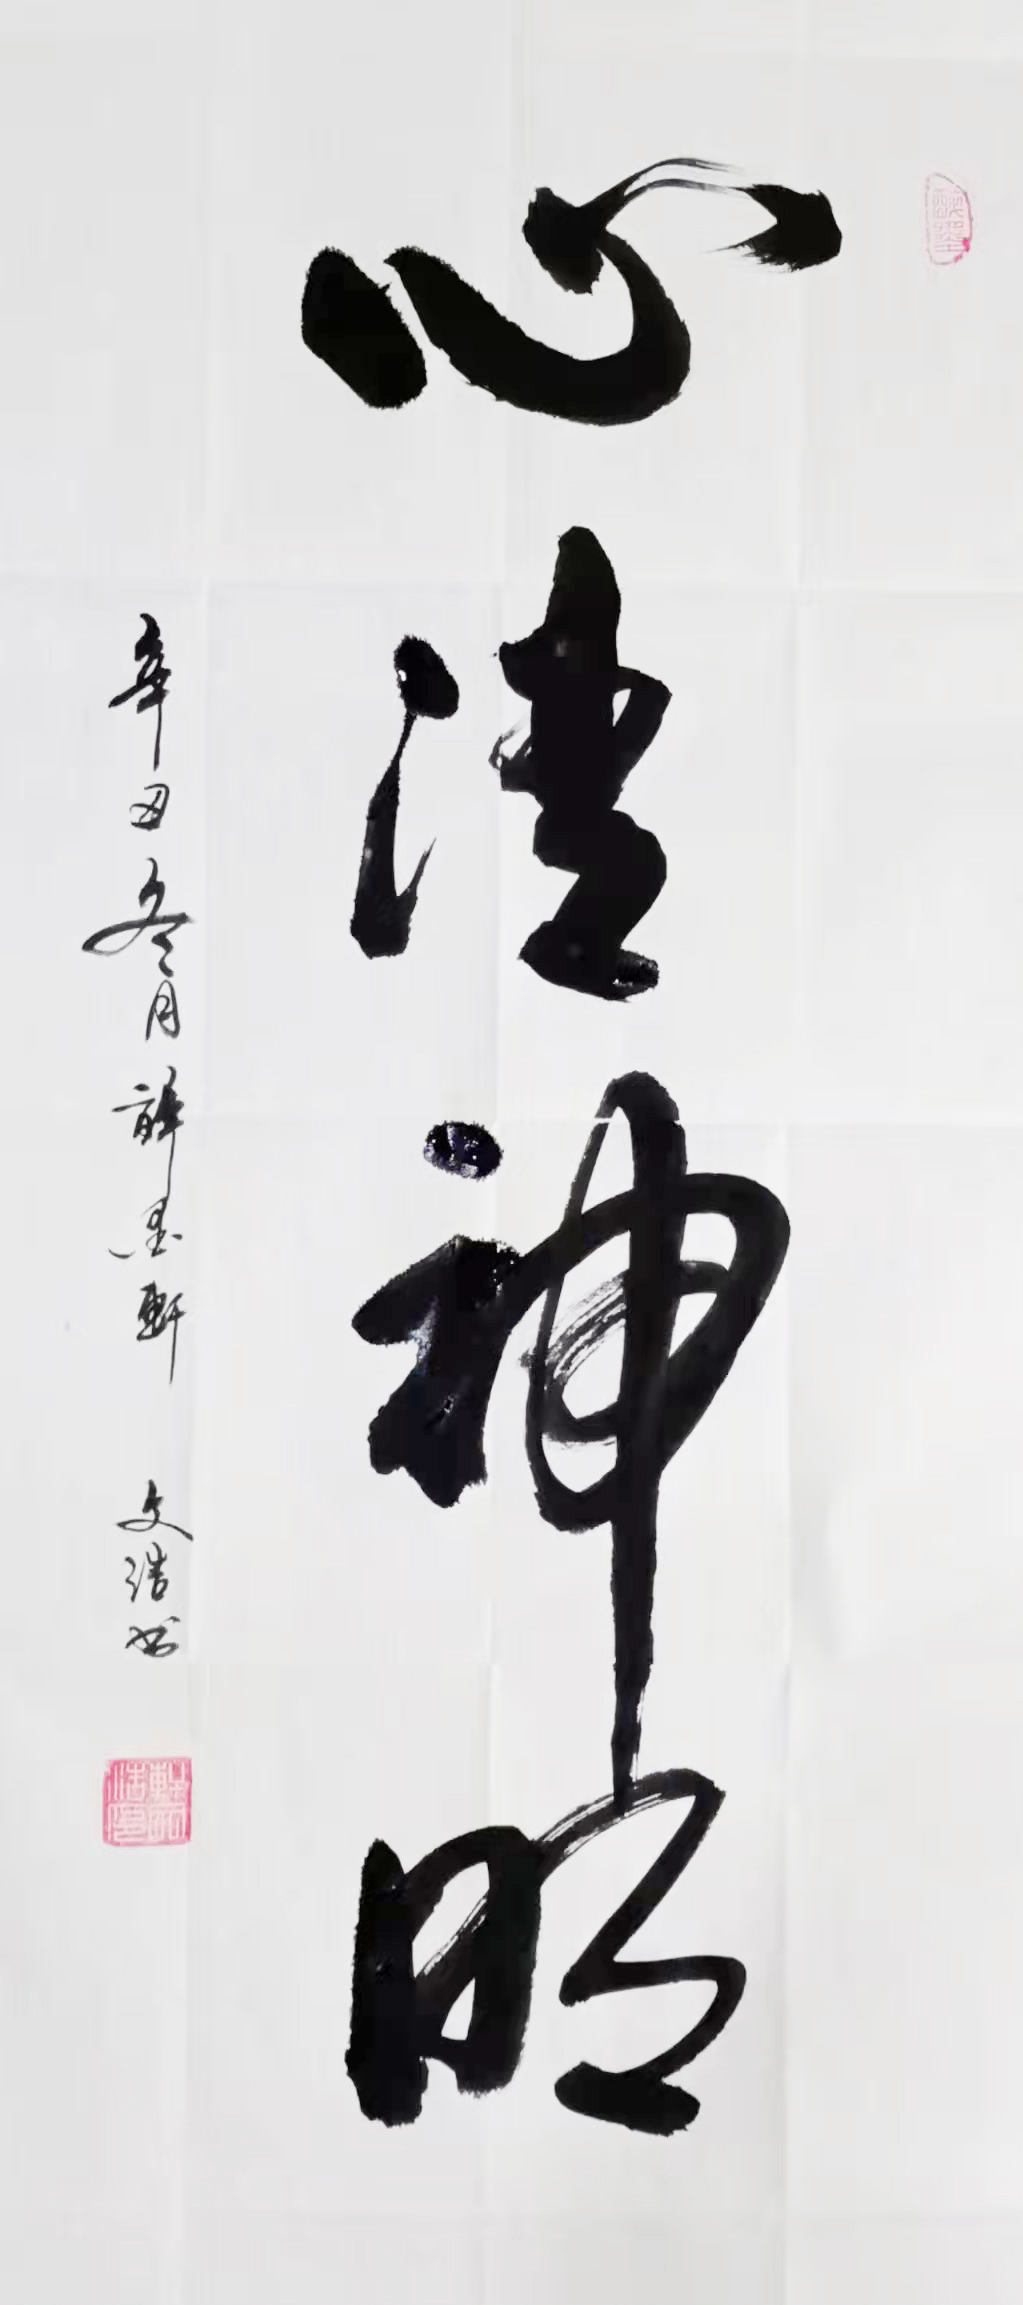 心清神明
辛丑冬月 醉墨軒 文浩书